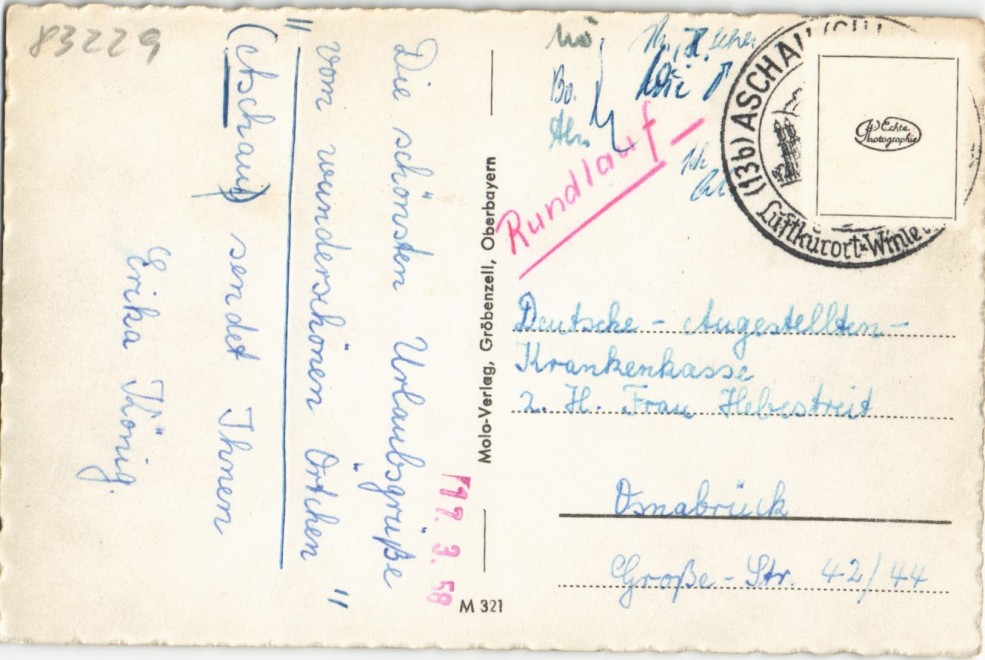 83229
Die schönsten Urlaubsgrüße
vom "wunderschönen Örtchen"
(Aschau) sendet Ihnen
Erika König.
17. 3. 58
M 321
Molo-Verlag, Gröbenzell, Oberbayern
Rundlauf
(13b) ASCHAU
Luftkurort-Winte
Echte
Photographie
Deutsche - Angestellten-
Krankenkasse
z. H. Frau Hebestreit
Osnabrück
Große-Str. 42/44